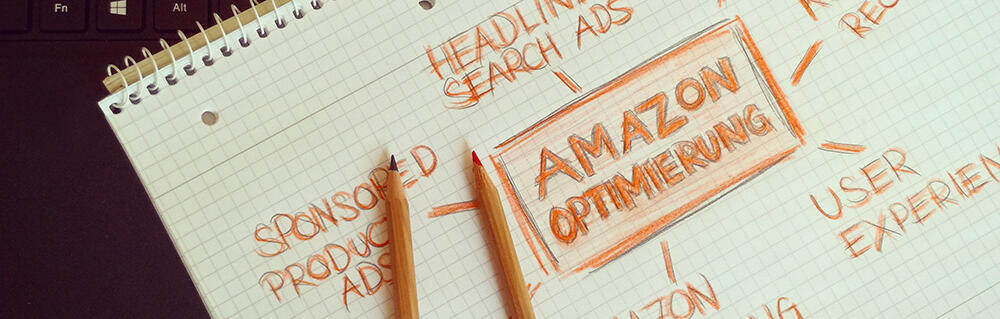 Fn
Alt
HEADLINE
SEARCH ADS
AMAZON
OPTIMIERUNG
SPONSORED
PRODUCT
ADS
USER
EXPERIEN
AMAZON